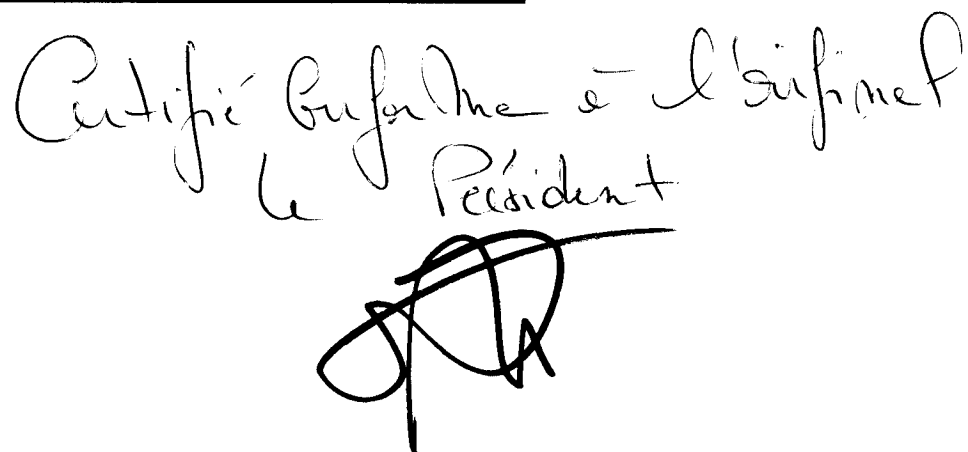 Certifié Conforme à l'original
Le Président